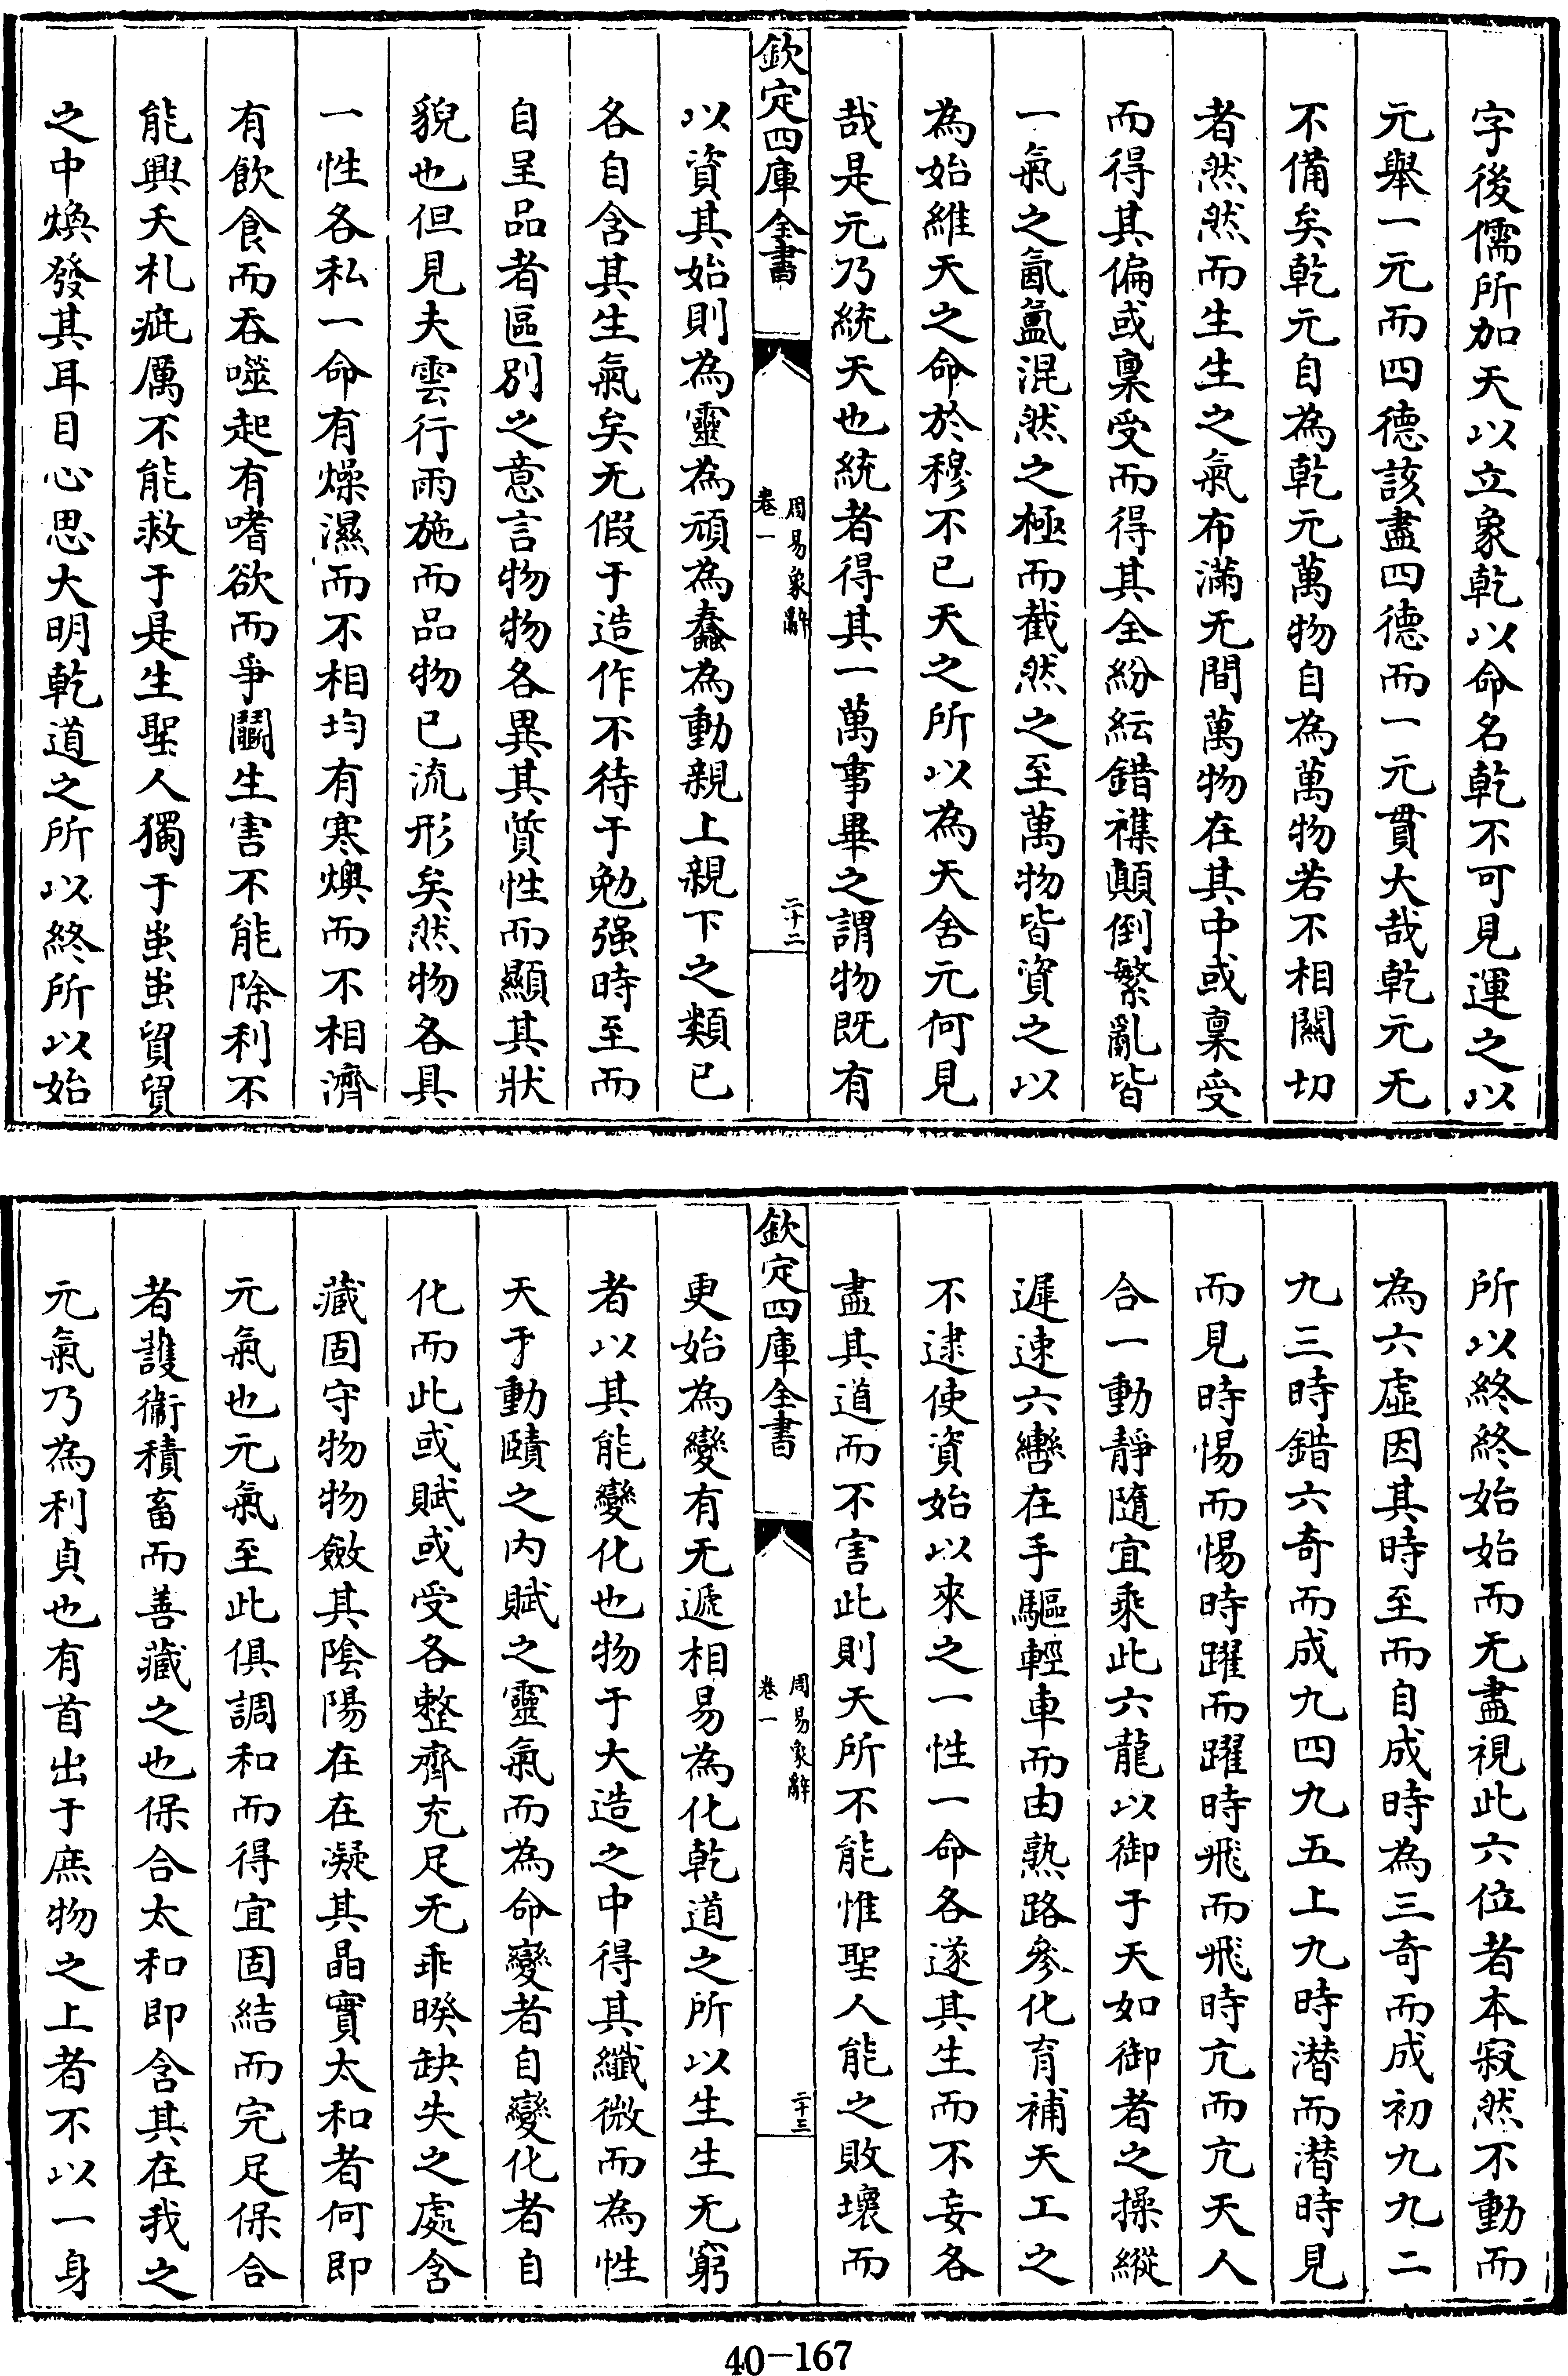 字後儒所加天以立象乾以命名乾不可見運之以
元舉一元而四德該盡四德而一元貫大哉乾元无
不備矣乾元自為乾元萬物自為萬物若不相關切
者然然而生生之氣布滿无間萬物在其中或稟受
而得其偏或稟受而得其全紛紜錯襍顛倒繁亂皆
一氣之氤氳混然之極而截然之至萬物皆資之以
為始維天之命於穆不已天之所以為天舍元何見
哉是元乃統天也統者得其一萬事畢之謂物既有
欽定四庫全書
周易象辭
卷一
二十二
以資其始則為靈為頑為蠢為動親上親下之類已
各自含其生氣矣无假于造作不待于勉强時至而
自呈品者區别之意言物物各異其質性而顯其狀
貌也但見夫雲行雨施而品物已流形矣然物各具
一性各私一命有燥濕而不相均有寒燠而不相濟
有飲食而吞噬起有嗜欲而爭鬭生害不能除利不
能興夭札疵厲不能救于是生聖人獨于蚩蚩貿貿
之中煥發其耳目心思大明乾道之所以終所以始
所以終終始始而无盡視此六位者本寂然不動而
為六虛因其時至而自成時為三奇而成初九九二
九三時錯六奇而成九四九五上九時潛而潛時見
而見時惕而惕時躍而躍時飛而飛時亢而亢天人
合一動靜隨宜乘此六龍以御于天如御者之操縱
遲速六轡在手驅輕車而由熟路參化育補天工之
不逮使資始以來之一性一命各遂其生而不妄各
盡其道而不害此則天所不能惟聖人能之敗壞而
欽定四庫全書
周易象辭
卷一
二十三
更始為變有无遞相易為化乾道之所以生生无窮
者以其能變化也物于大造之中得其纖微而為性
天于動賾之内賦之靈氣而為命變者自變化者自
化而此或賦或受各整齊充足无乖暌缺失之處含
藏固守物物斂其陰陽在在凝其晶實太和者何即
元氣也元氣至此俱調和而得宜固結而完足保合
者護衛積畜而善藏之也保合太和即含其在我之
元氣乃為利貞也有首出于庶物之上者不以一身
40-167